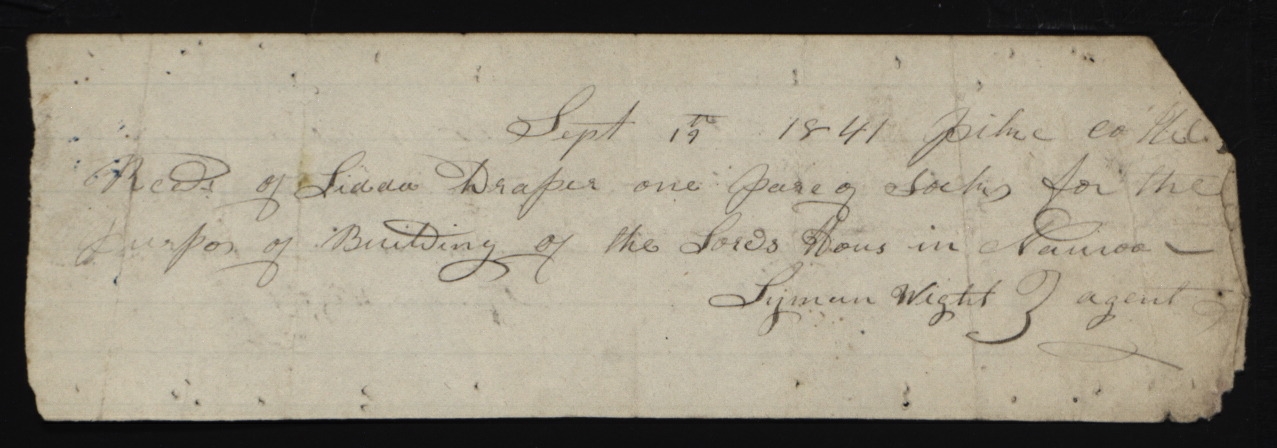 Sept 19th 1841 pike co Ill
Recd of Lidda Draper one pare of Socks for the
purpos of Building of the Lords Hous in Nauvoo –
Lyman Wight } agent